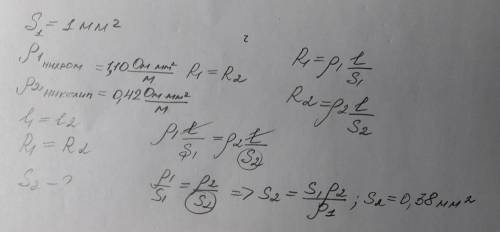 S₁ = 1 мм²
ρ₁ нихром = 1,10 Ом мм²/м
ρ₂ никелин = 0,42 Ом мм²/м
l₁ = l₂
R₁ = R₂
S₂ - ?
R₁ = R₂
ρ₁ l/S₁ = ρ₂ l/S₂
ρ₁/S₁ = ρ₂/S₂ => S₂ = S₁ρ₂/ρ₁ ; S₂ = 0,38 мм²
R₁ = ρ₁ l/S₁
R₂ = ρ₂ l/S₂